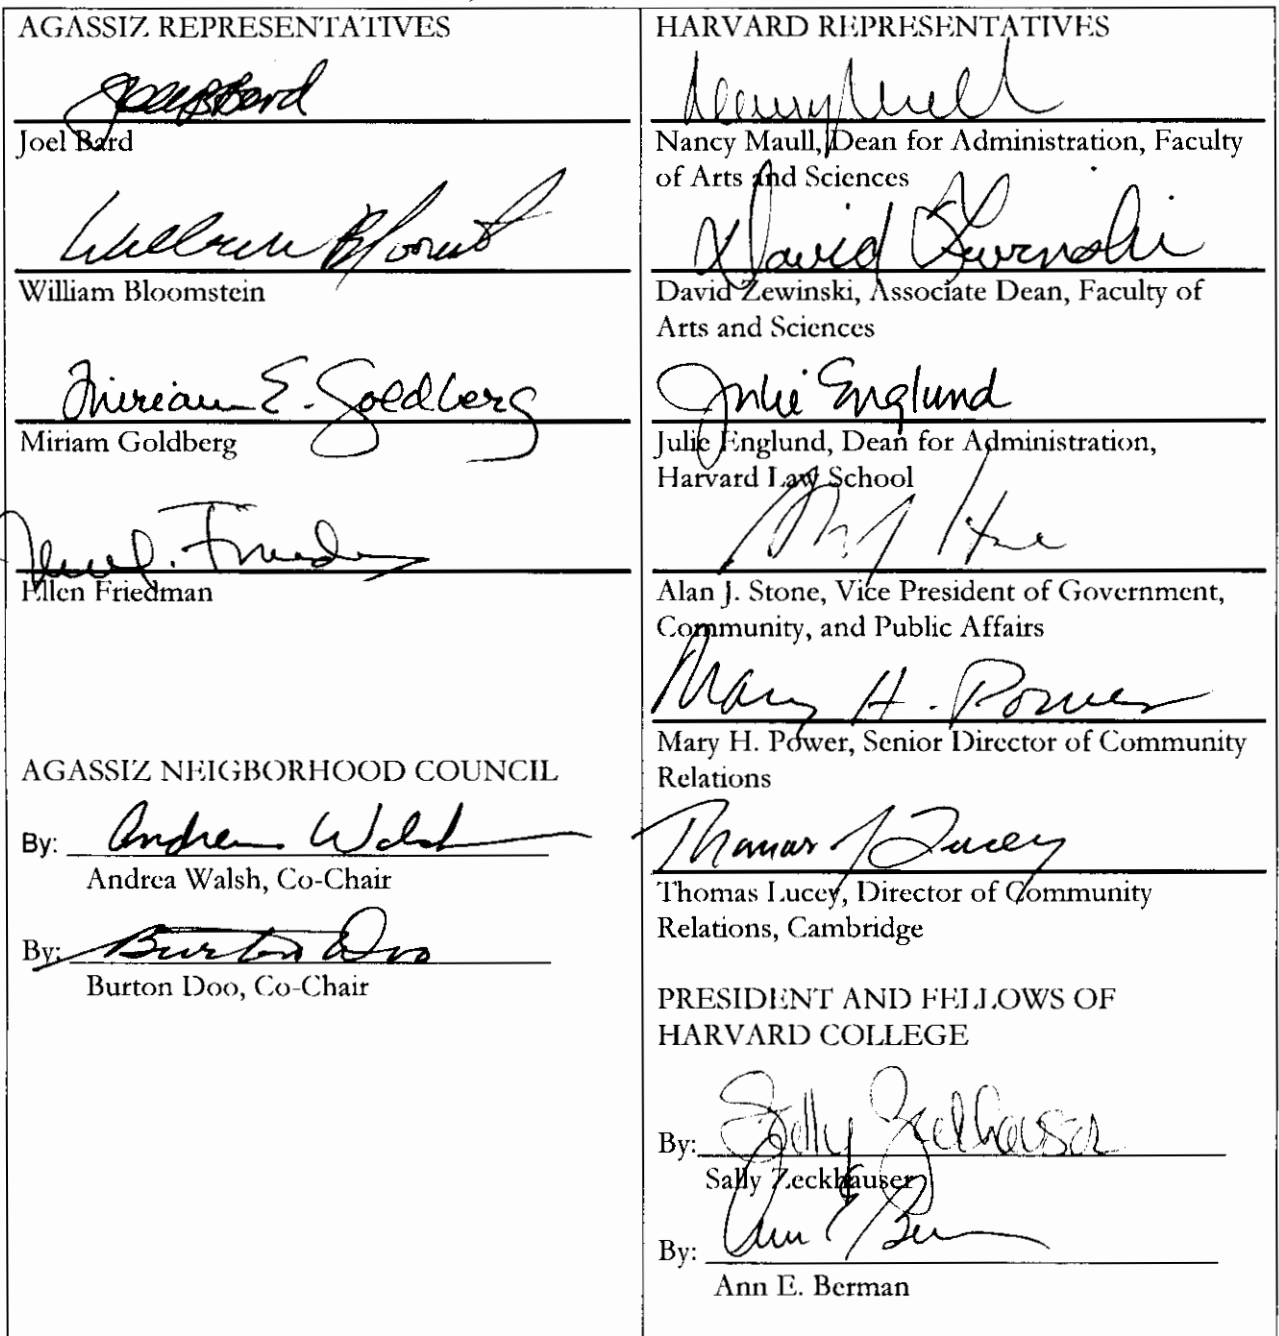 AGASSIZ REPRESENTATIVES
Joel Bard
Joel Bard
William
William Bloomstein
Miriam E. Goldberg
Miriam Goldberg
Ellen Friedman
AGASSIZ NEIGBORHOOD COUNCIL
By: Andrea Walsh
Andrea Walsh, Co-Chair
By: Burton Doo
Burton Doo, Co-Chair
HARVARD REPRESENTATIVES
Nancy Maull
Nancy Maull, Dean for Administration, Faculty
of Arts and Sciences
David Zewinski
David Zewinski, Associate Dean, Faculty of
Arts and Sciences
Julie Englund
Julie Englund, Dean for Administration,
Harvard Law School
Alan J. Stone, Vice President of Government,
Community, and Public Affairs
Mary H. Power
Mary H. Power, Senior Director of Community
Relations
Thomas J Lucey
Thomas Lucey, Director of Community
Relations, Cambridge
PRESIDENT AND FELLOWS OF
HARVARD COLLEGE
By: Sally Zeckhauser
Sally Zeckhauser
By: Ann E Berman
Ann E. Berman